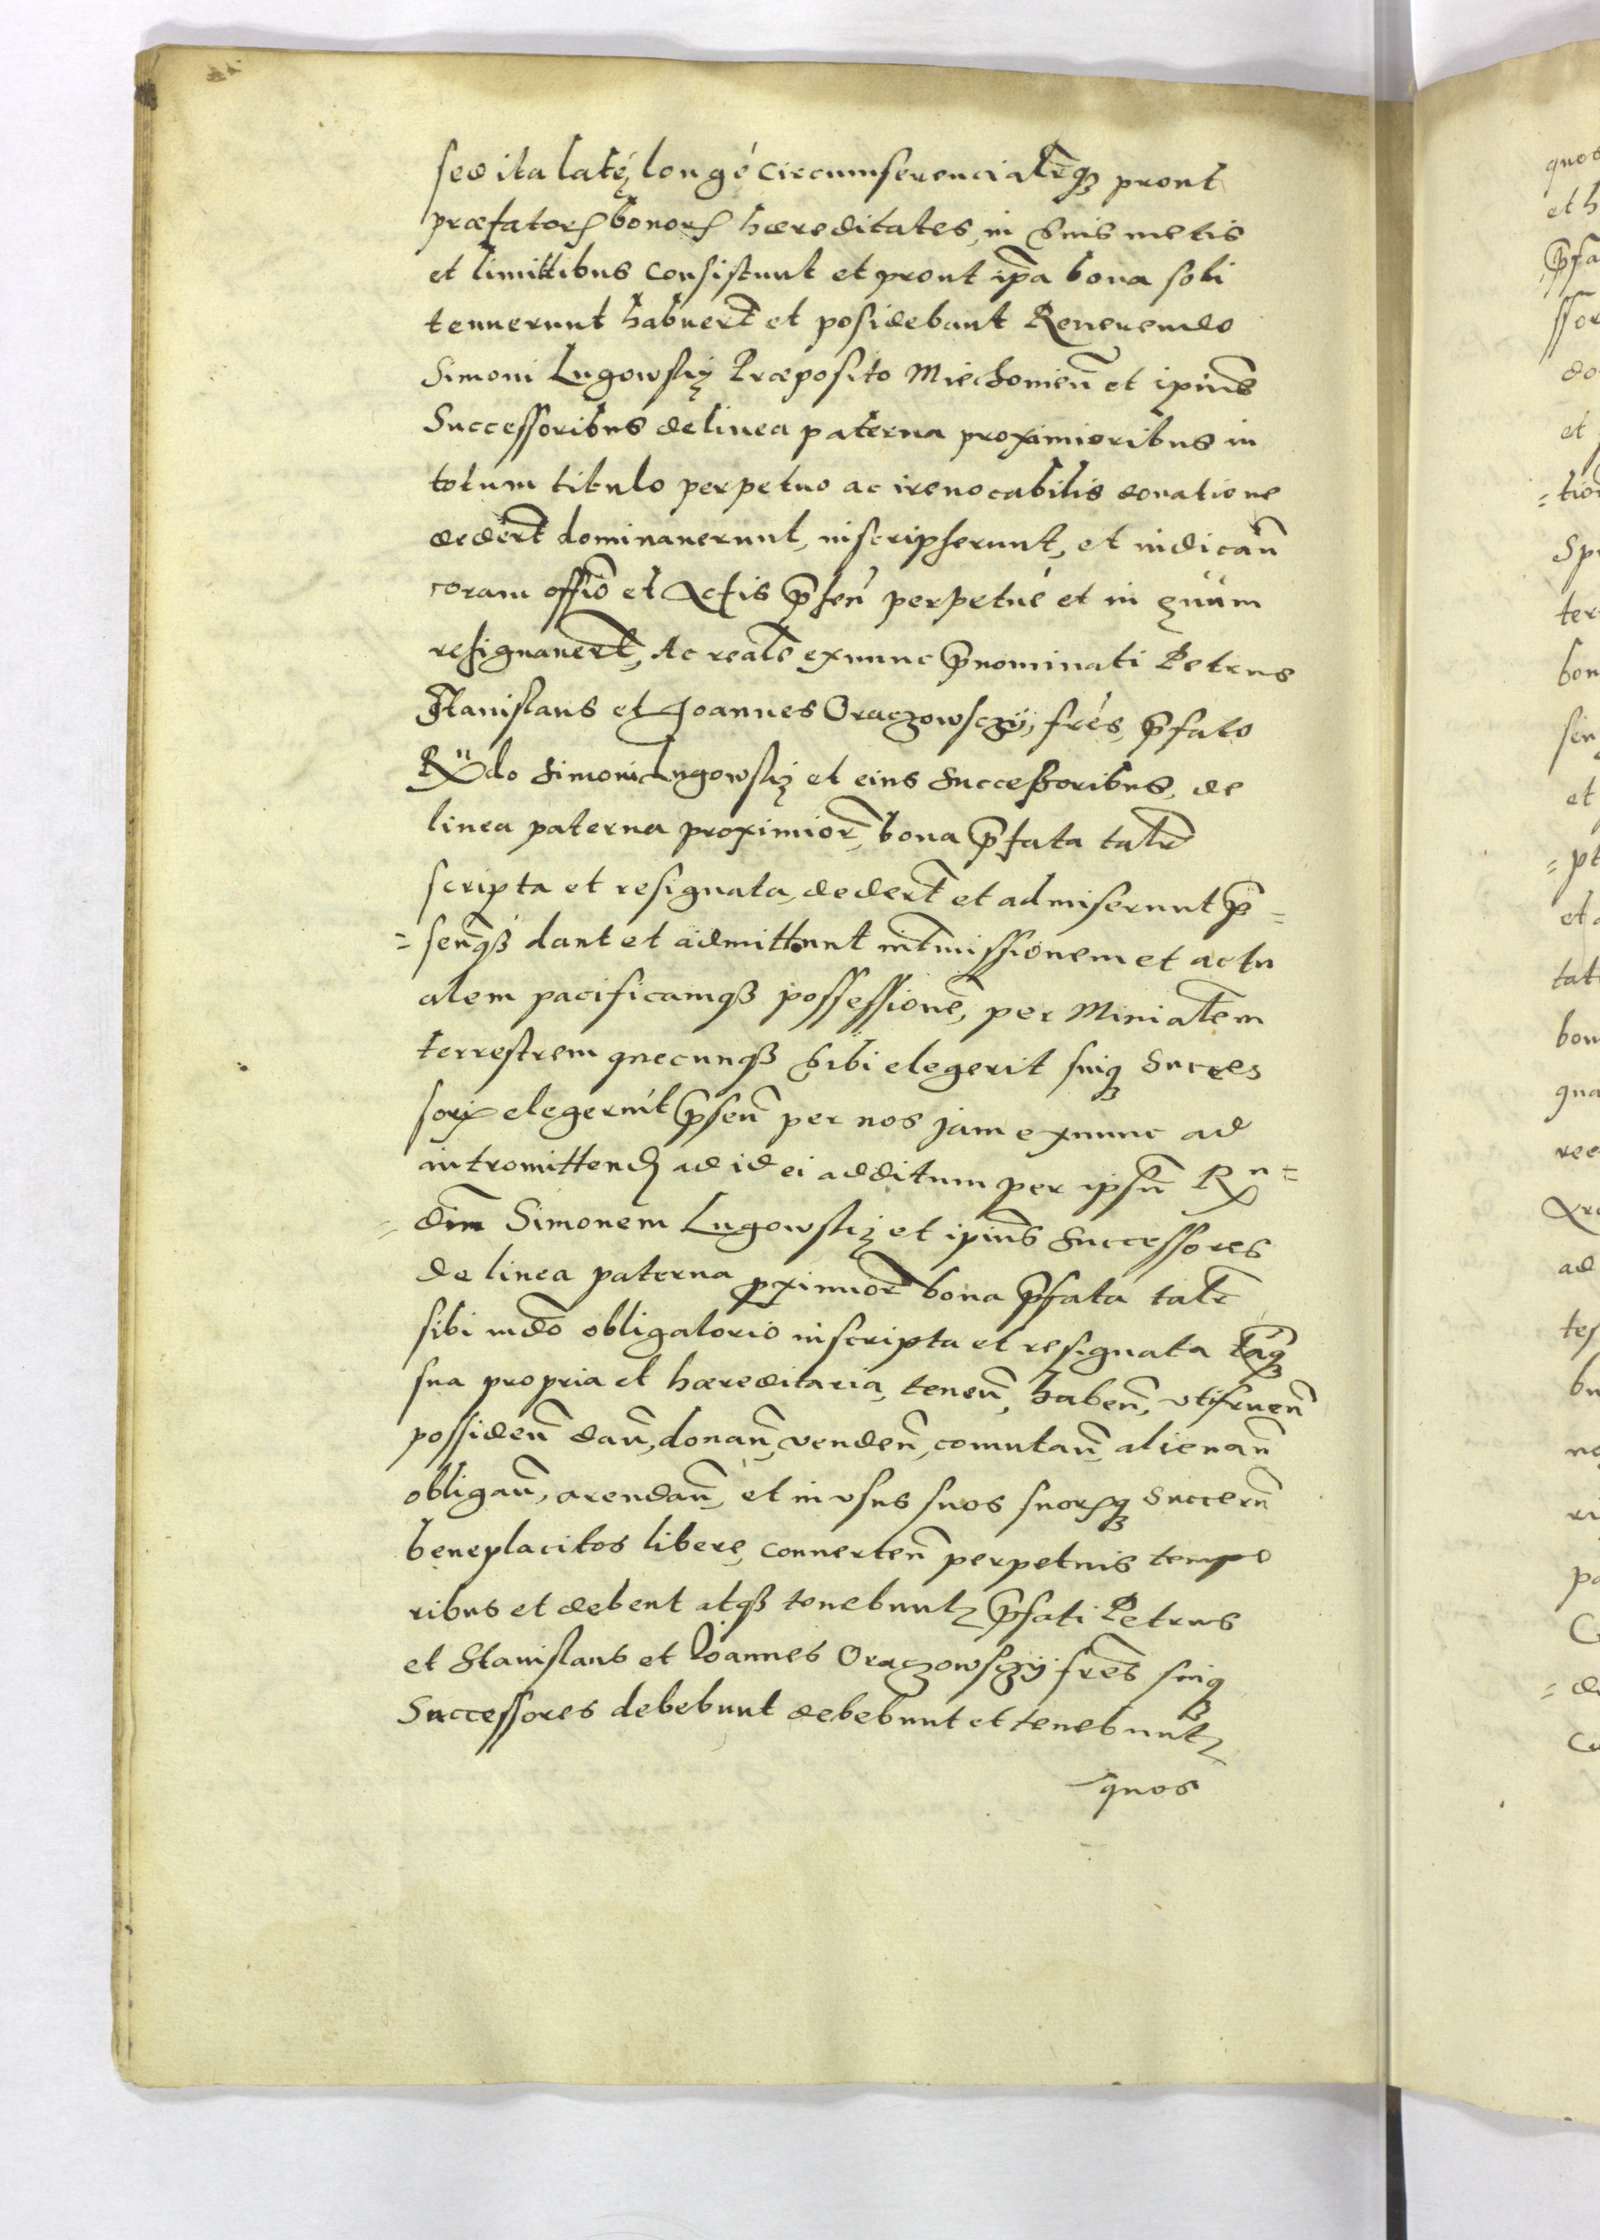 sed ita latę, longé circumferencialr̃qꝫ prout
præfatorꝭ bonorꝭ hæreditates, in suis metis
et limittibus consistunt et prout ip̃a bona soli
tenuerunt habuerт̃ et posidebant Reuerendo
Simoni Lugowskį Præposito Miechouien̄ et ipius̃
Successoribus de linea paterna proximioribus in
totum titulo perpetuo ac ireuocabilis donatione
dedert̃ dominauerunt, inscripserunt, et indicau̅
coram offio̅ et Actis p̄sen̄ perpetué et in
resignauert̃, Ac realr̃ exnunc p̄nominati Petrus
Stanislaus et Joannes Oraczowsczÿ, frés, p̄fato
Rndo Simoni Lugowskį et eius Successoribus, de
linea paterna proximior̃, bona p̄fata talr̃
scripta et resignata, dedert̃ et admiserunt p̄=
=senqꝫ dant et admittunt int̃missionem et actu
alem pacificamqꝫ possessione̅, per Minialem̃
terrestrem quecunqꝫ sibi elegerit suiqꝫ Succes
sorꝭ elegerint p̄sen̄ per nos jam exnunc ad
intromittenꝺ ad id ei additum per ipsu̅ Rn=
=dm̄ Simonem Lugowskį et ipius̃ Successores
de linea paterna ꝓximior̃ bona p̄fata talr̃
sibi mdo̅ obligatorio inscripta et resignata tãqꝫ
sua propria et hæreditaria, tenen̄, haben̄, vtifruen̄
possiden̄ dan̄, donan̄, venden̄, comutan̄, alienan̄
obligan̄, arendan̄, et in vsus suos suorꝭqꝫ Succern̄
beneplacitos libere, conuerten̄ perpetuis tempo
ribus et debent atqꝫ tenebuntꝛ p̄fati Petrus
et Stanislaus et Joannes Oraczowsczÿ fres̃ suiqꝫ
Successores debebunt debebunt et tenebuntꝛ
quos